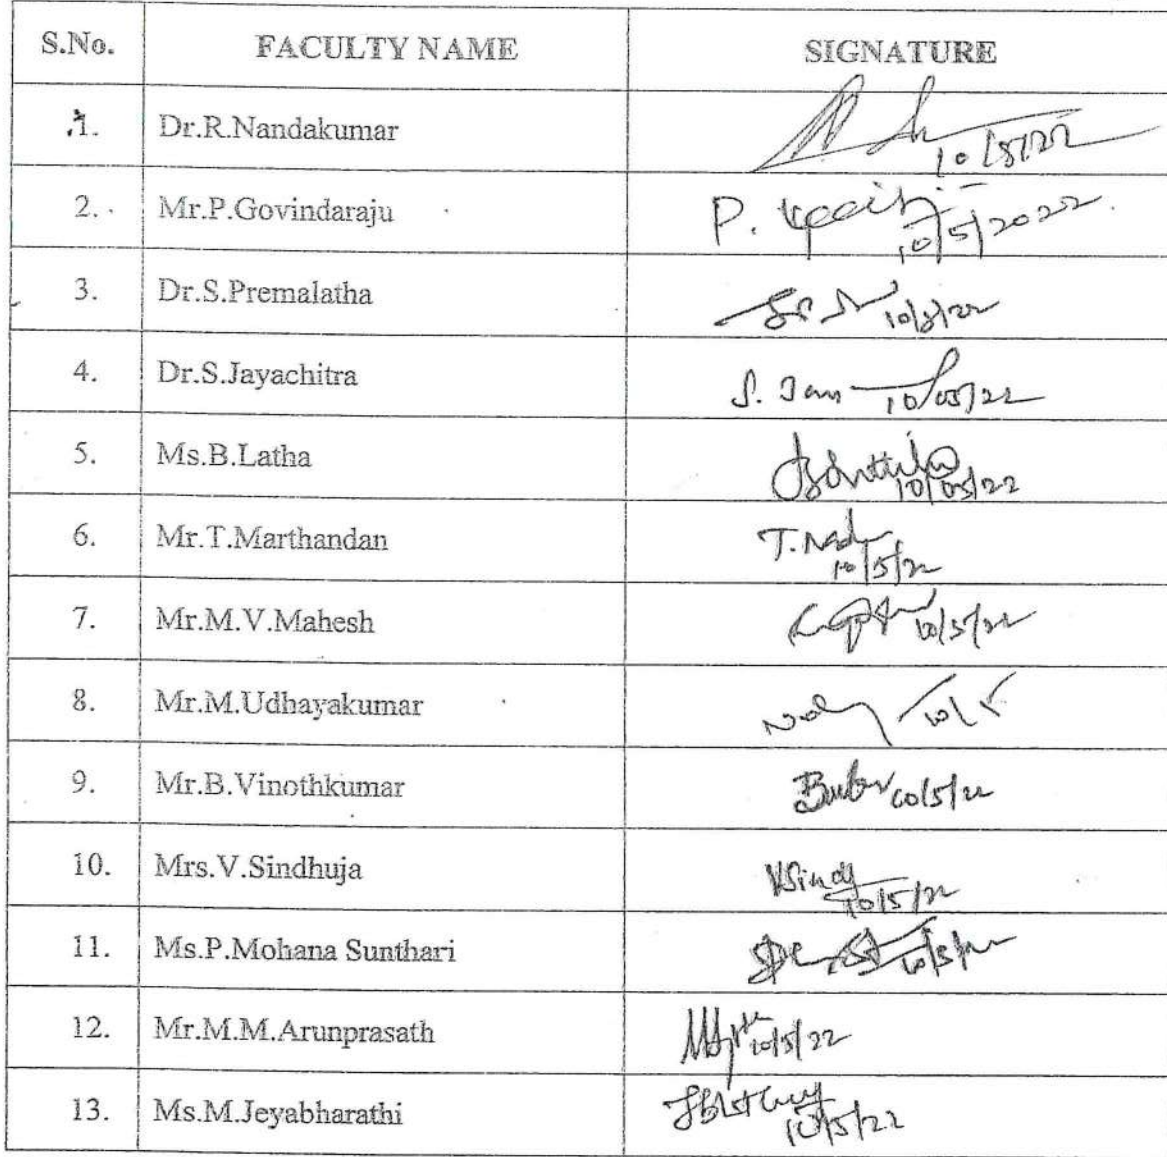 S.No. FACULTY NAME SIGNATURE
1. Dr.R.Nandakumar 10/5/22
2. Mr.P.Govindaraju P. 10/5/2022
3. Dr.S.Premalatha 10/5/22
4. Dr.S.Jayachitra S. 10/05/22
5. Ms.B.Latha 10/05/22
6. Mr.T.Marthandan T. 10/5/22
7. Mr.M.V.Mahesh 10/5/22
8. Mr.M.Udhayakumar 10/5
9. Mr.B.Vinothkumar 10/5/22
10. Mrs.V.Sindhuja VSindj 10/5/22
11. Ms.P.Mohana Sunthari 10/5/22
12. Mr.M.M.Arunprasath 10/5/22
13. Ms.M.Jeyabharathi 10/5/22